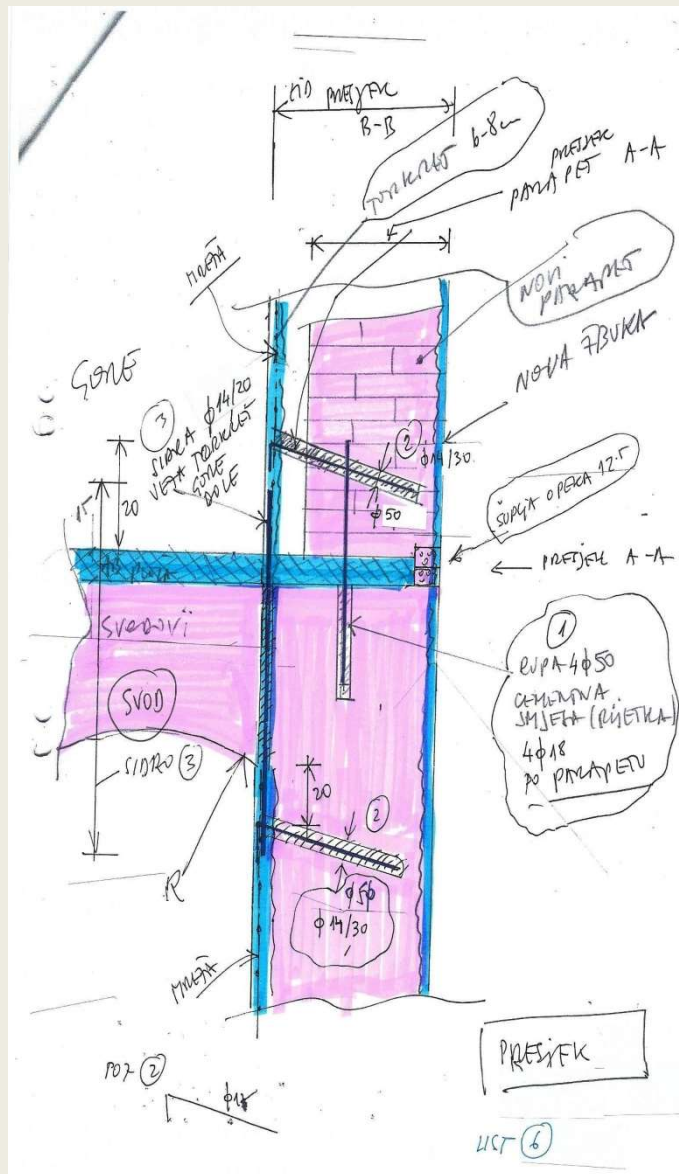 ZID PRESJEK
B-B
TORKRET 6-8cm
PRESJEK
PARAPET A-A
MREŽA
NOVI
PARAPET
NOVA ŽBUKA
GORE
3
SIDRA φ14/20
VEŽA TORKRET
GORE
DOLE
2
φ14/30
φ50
ŠUPLJA OPEKA 12.5
15
20
AB PLOČA
PRESJEK A-A
SVODOVI
SVOD
1
RUPA 4φ50
CEMENTNA
SMJESA (RIJETKA)
4φ18
PO PARAPETU
SIDRO 3
20
2
R
φ50
φ14/30
MREŽA
PRESJEK
POZ 2
LIST 6